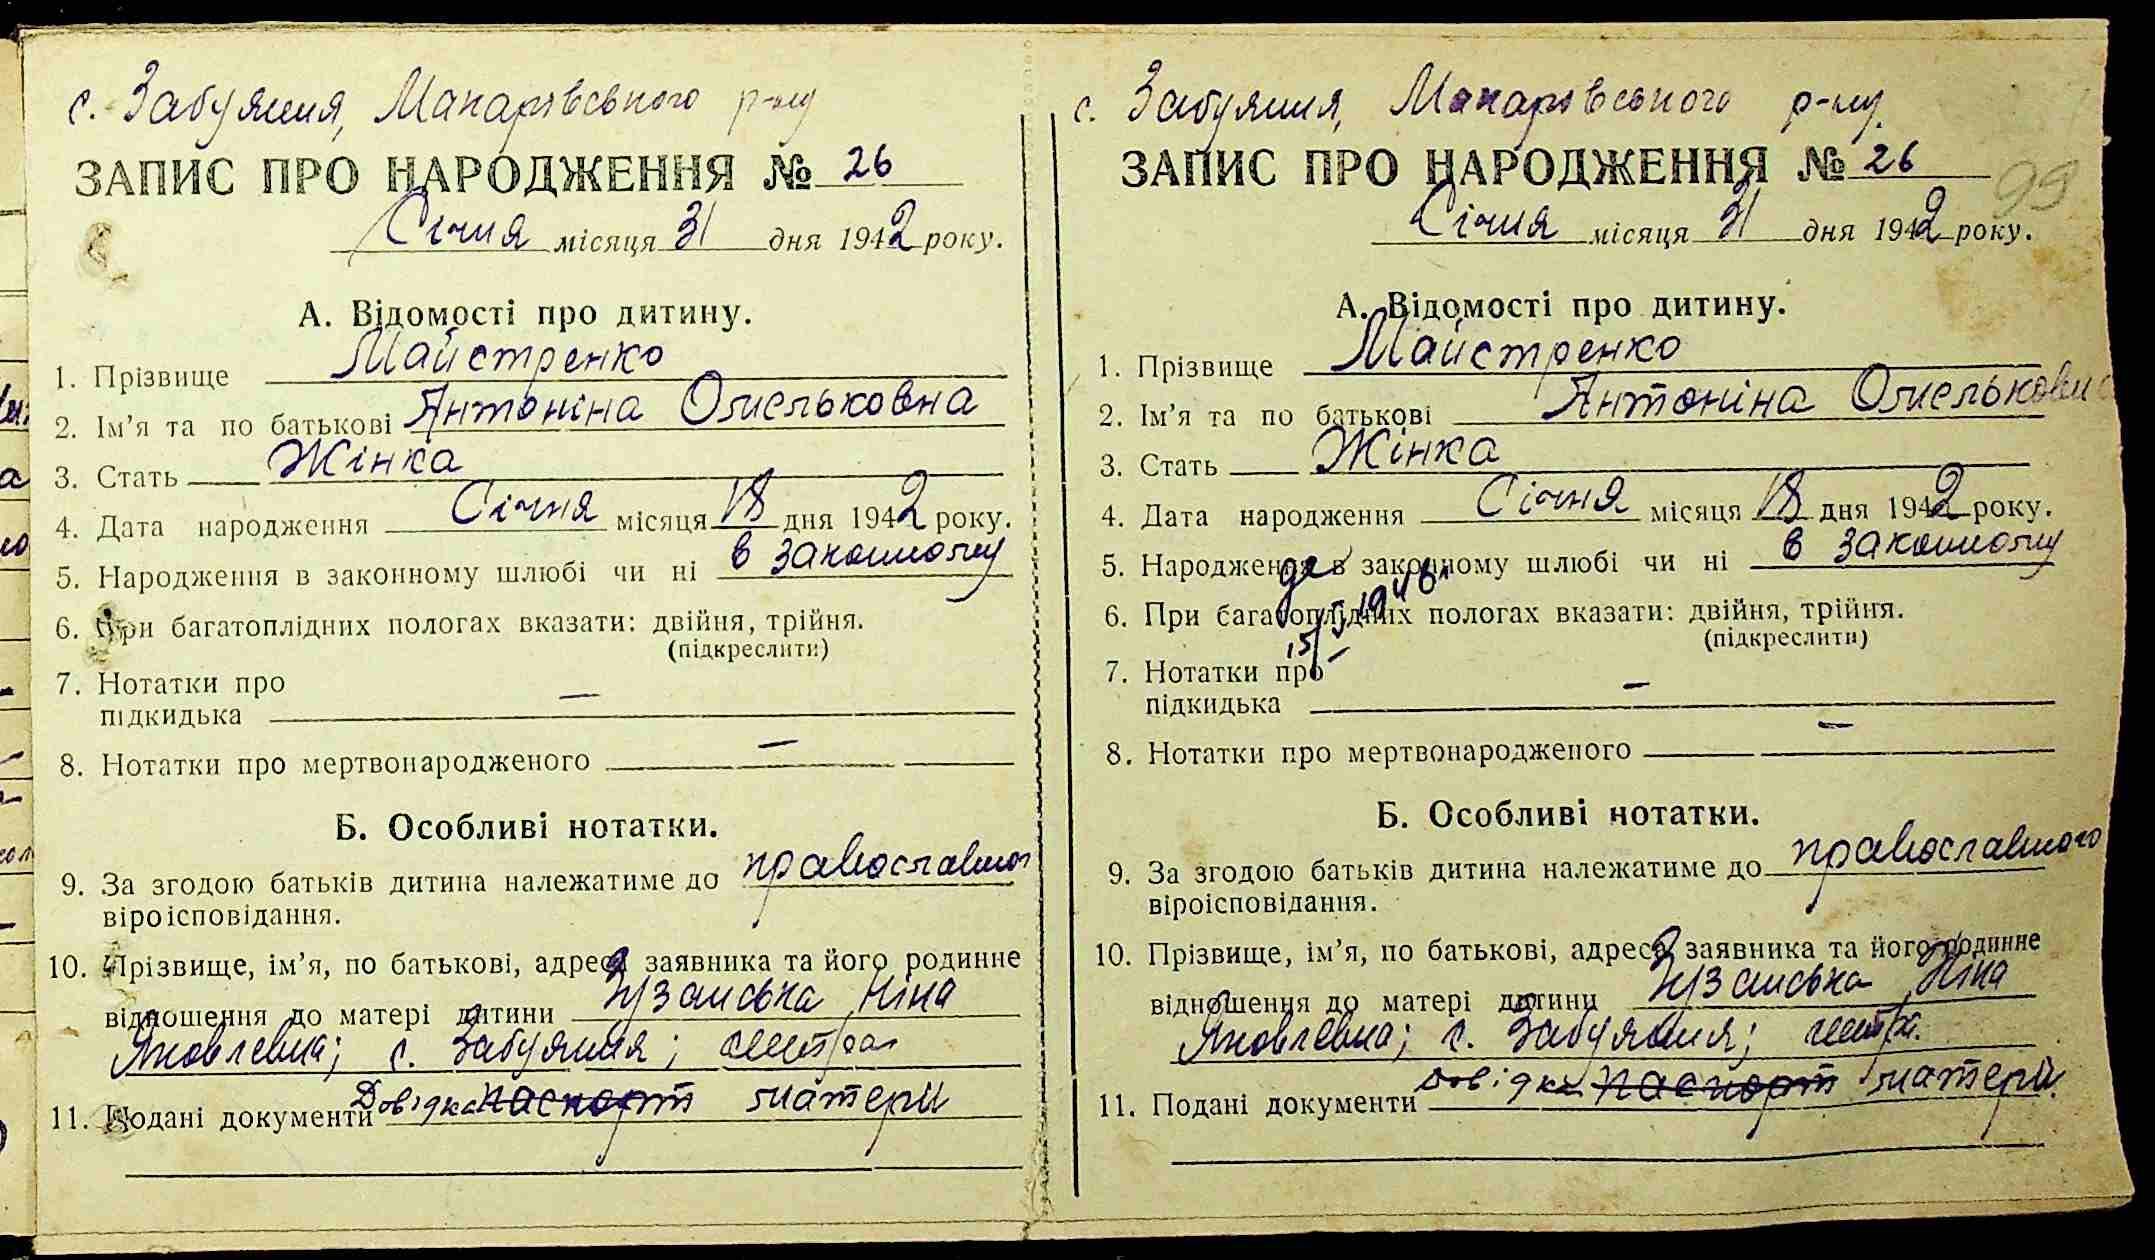 с. Забуяння, Макарівського р-ну
ЗАПИС ПРО НАРОДЖЕННЯ № 26
Січня місяця 31 дня 1942 року.
А. Відомості про дитину.
1. Прізвище Майстренко
2. Ім'я та по батькові Антоніна Омельковна
3. Стать Жінка
4. Дата народження Січня місяця 18 дня 1942 року.
5. Народження в законному шлюбі чи ні в законному
6. При багатоплідних пологах вказати: двійня, трійня.
(підкреслити)
7. Нотатки про
підкидька —
8. Нотатки про мертвонародженого —
Б. Особливі нотатки.
9. За згодою батьків дитина належатиме до православного
віроісповідання.
10. Прізвище, ім'я, по батькові, адреса заявника та його родинне
відношення до матері дитини Ніна
Яковлевна; с. Забуяння; сестра
11. Подані документи Довідка паспорт матери
с. Забуяння, Макарівського р-ну
ЗАПИС ПРО НАРОДЖЕННЯ № 26
99
Січня місяця 31 дня 1942 року.
А. Відомості про дитину.
1. Прізвище Майстренко
2. Ім'я та по батькові Антоніна Омельковна
3. Стать Жінка
4. Дата народження Січня місяця 18 дня 1942 року.
5. Народження в законному шлюбі чи ні в законному
6. При багатоплідних пологах вказати: двійня, трійня.
(підкреслити)
7. Нотатки про
підкидька —
8. Нотатки про мертвонародженого —
Б. Особливі нотатки.
9. За згодою батьків дитина належатиме до православного
віроісповідання.
10. Прізвище, ім'я, по батькові, адреса заявника та його родинне
відношення до матері дитини Ніна
Яковлевна; с. Забуяння; сестра.
11. Подані документи Довідка паспорт матери.